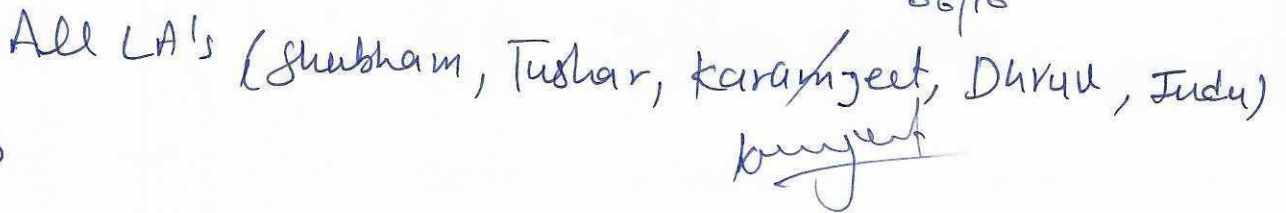 06/10
All LA's (Shubham, Tushar, Karamjeet, Dhruv, Indu)